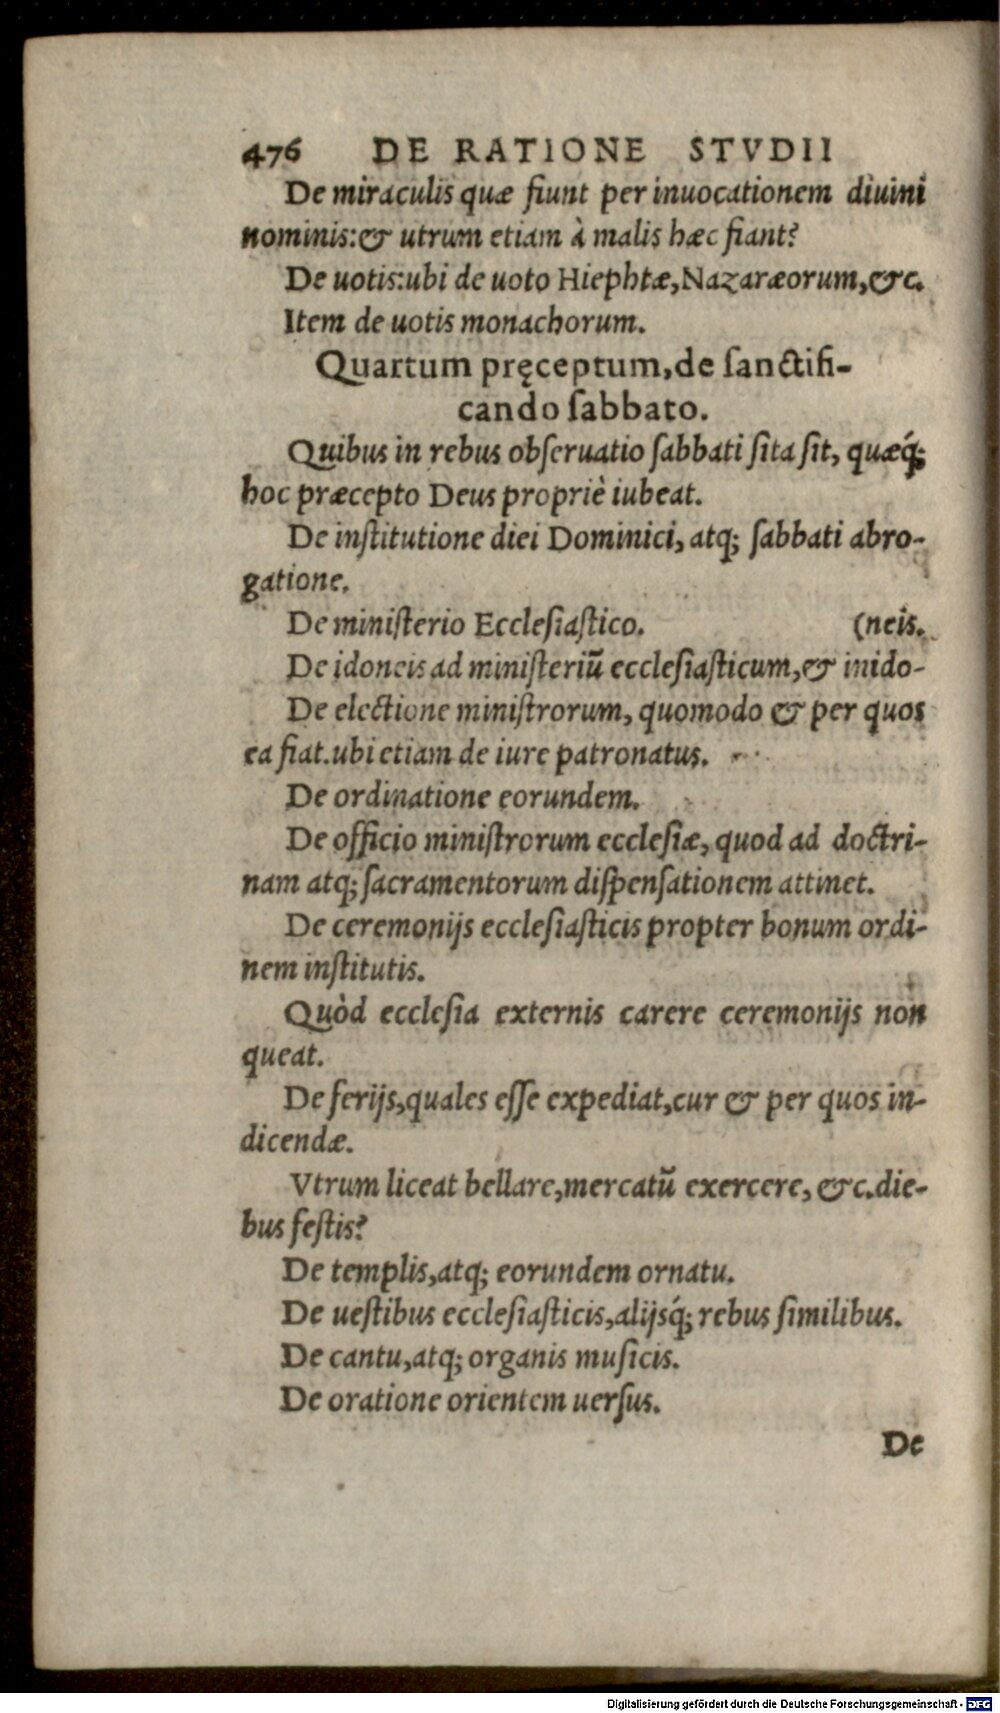 476 DE RATIONE STVDII
De miraculis quæ fiunt per inuocationem diuini
nominis:& utrum etiam à malis hæc fiant?
De uotis:ubi de uoto Hiephtæ,Nazaræorum,&c.
Item de uotis monachorum.
Quartum pręceptum,de ſanctifi-
cando ſabbato.
Quibus in rebus obſeruatio ſabbati ſita ſit, quæq́;
hoc præcepto Deus propriè iubeat.
De inſtitutione diei Dominici, atq; ſabbati abro-
gatione.
De miniſterio Eccleſiaſtico. (neis.
De idoneis ad miniſteriũ eccleſiaſticum,& inido-
De electione miniſtrorum, quomodo & per quos
ea fiat.ubi etiam de iure patronatus.
De ordinatione eorundem.
De officio miniſtrorum eccleſiæ, quod ad doctri-
nam atq; ſacramentorum diſpenſationem attinet.
De ceremonijs eccleſiaſticis propter bonum ordi-
nem inſtitutis.
Quòd eccleſia externis carere ceremonijs non
queat.
De ferijs,quales eſſe expediat,cur & per quos in-
dicendæ.
Vtrum liceat bellare,mercatũ exercere, &c.die-
bus feſtis?
De templis,atq; eorundem ornatu.
De ueſtibus eccleſiaſticis,alijsq́; rebus ſimilibus.
De cantu,atq; organis muſicis.
De oratione orientem uerſus.
De
Digitalisierung gefördert durch die Deutsche Forschungsgemeinschaft - DFG